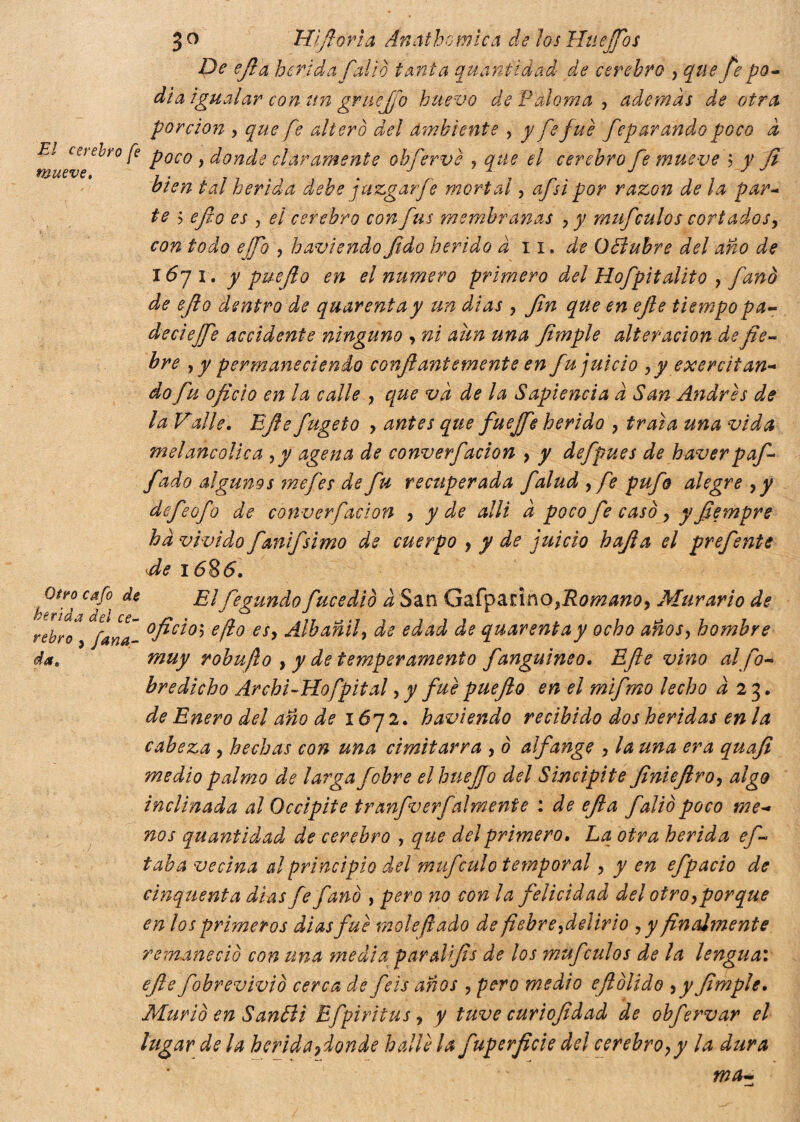 30 Hiſtoria Anathomica de los Hueſſos
De eſta herida ſaliò tanta quantidad de cerebro, que ſe po-
dia igualar con un grueſſo huevo de Paloma, ademàs de otra
porcion, que ſe alterò del ambiente, y ſe fuè ſeparando poco à
El cerebro ſe mueve.
poco, donde claramente obſervè, que el cerebro ſe mueve; y ſi
bien tal herida debe juzgarſe mortal, aſsi por razon de la par-
te; eſto es, el cerebro con ſus membranas, y muſculos cortados,
con todo eſſo, haviendo ſido herido à 11. de Octubre del año de
1671. y pueſto en el numero primero del Hoſpitalito, ſanò
de eſto dentro de quarenta y un dias, ſin que en eſte tiempo pa-
decieſſe accidente ninguno, ni aùn una ſimple alteracion de fie-
bre, y permaneciendo conſtantemente en ſu juicio, y exercitan-
do ſu oficio en la calle, que và de la Sapiencia à San Andrès de
la Valle. Eſte ſugeto, antes que fueſſe herido, traìa una vida
melancolica, y agena de converſacion, y deſpues de haver paſ-
ſado algunos meſes de ſu recuperada ſalud, ſe puſo alegre, y
deſeoſo de converſacion, y de alli à poco ſe casò, y ſiempre
hà vivido ſaniſsimo de cuerpo, y de juicio haſta el preſente
de 1686.
Otro caſo de herida del ce-
rebro, ſana-
da.
El ſegundo ſucediò à San Gaſparino, Romano, Murario de
oficio; eſto es, Albañil, de edad de quarenta y ocho años, hombre
muy robuſto, y de temperamento ſanguineo. Eſte vino al ſo-
bredicho Archi-Hoſpital, y fuè pueſto en el miſmo lecho à 23.
de Enero del año de 1672. haviendo recibido dos heridas en la
cabeza, hechas con una cimitarra, ò alfange, la una era quaſi
medio palmo de larga ſobre el hueſſo del Sincipite ſinieſtro, algo
inclinada al Occipite tranſverſalmente: de eſta ſaliò poco me-
nos quantidad de cerebro, que del primero. La otra herida eſ-
taba vecina al principio del muſculo temporal, y en eſpacio de
cinquenta dias ſe ſanò, pero no con la felicidad del otro, porque
en los primeros dias fuè moleſtado de fiebre, delirio, y finalmente
remaneciò con una media paraliſis de los muſculos de la lengua:
eſte ſobreviviò cerca de ſeis años, pero medio eſtòlido, y ſimple.
Muriò en Sancti Eſpiritus, y tuve curioſidad de obſervar el
lugar de la herida, donde hallè la ſuperficie del cerebro, y la dura
ma-